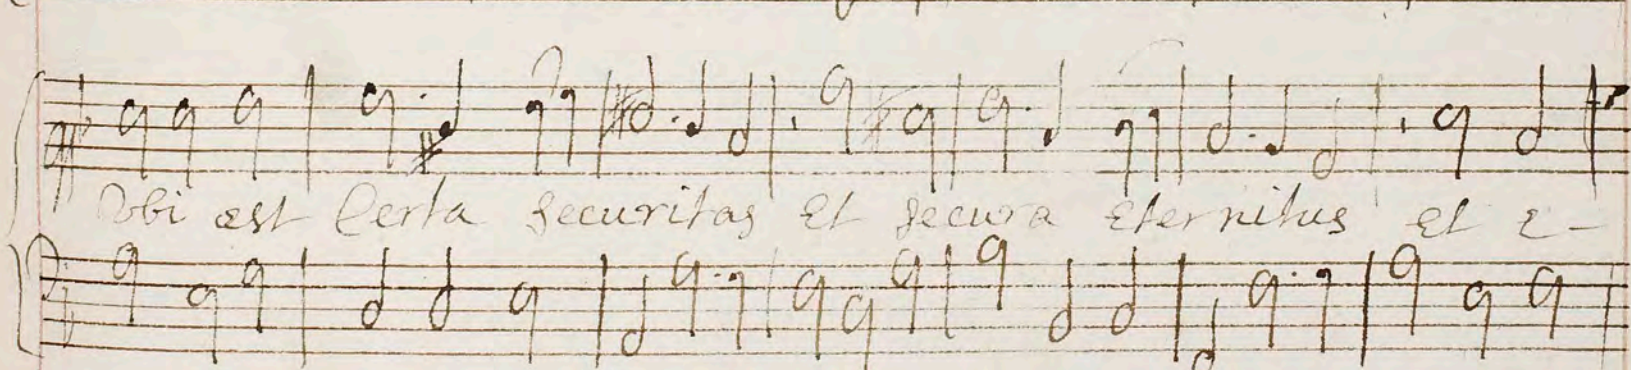 Vbi est Certa securitas Et secura Eternitas et E-